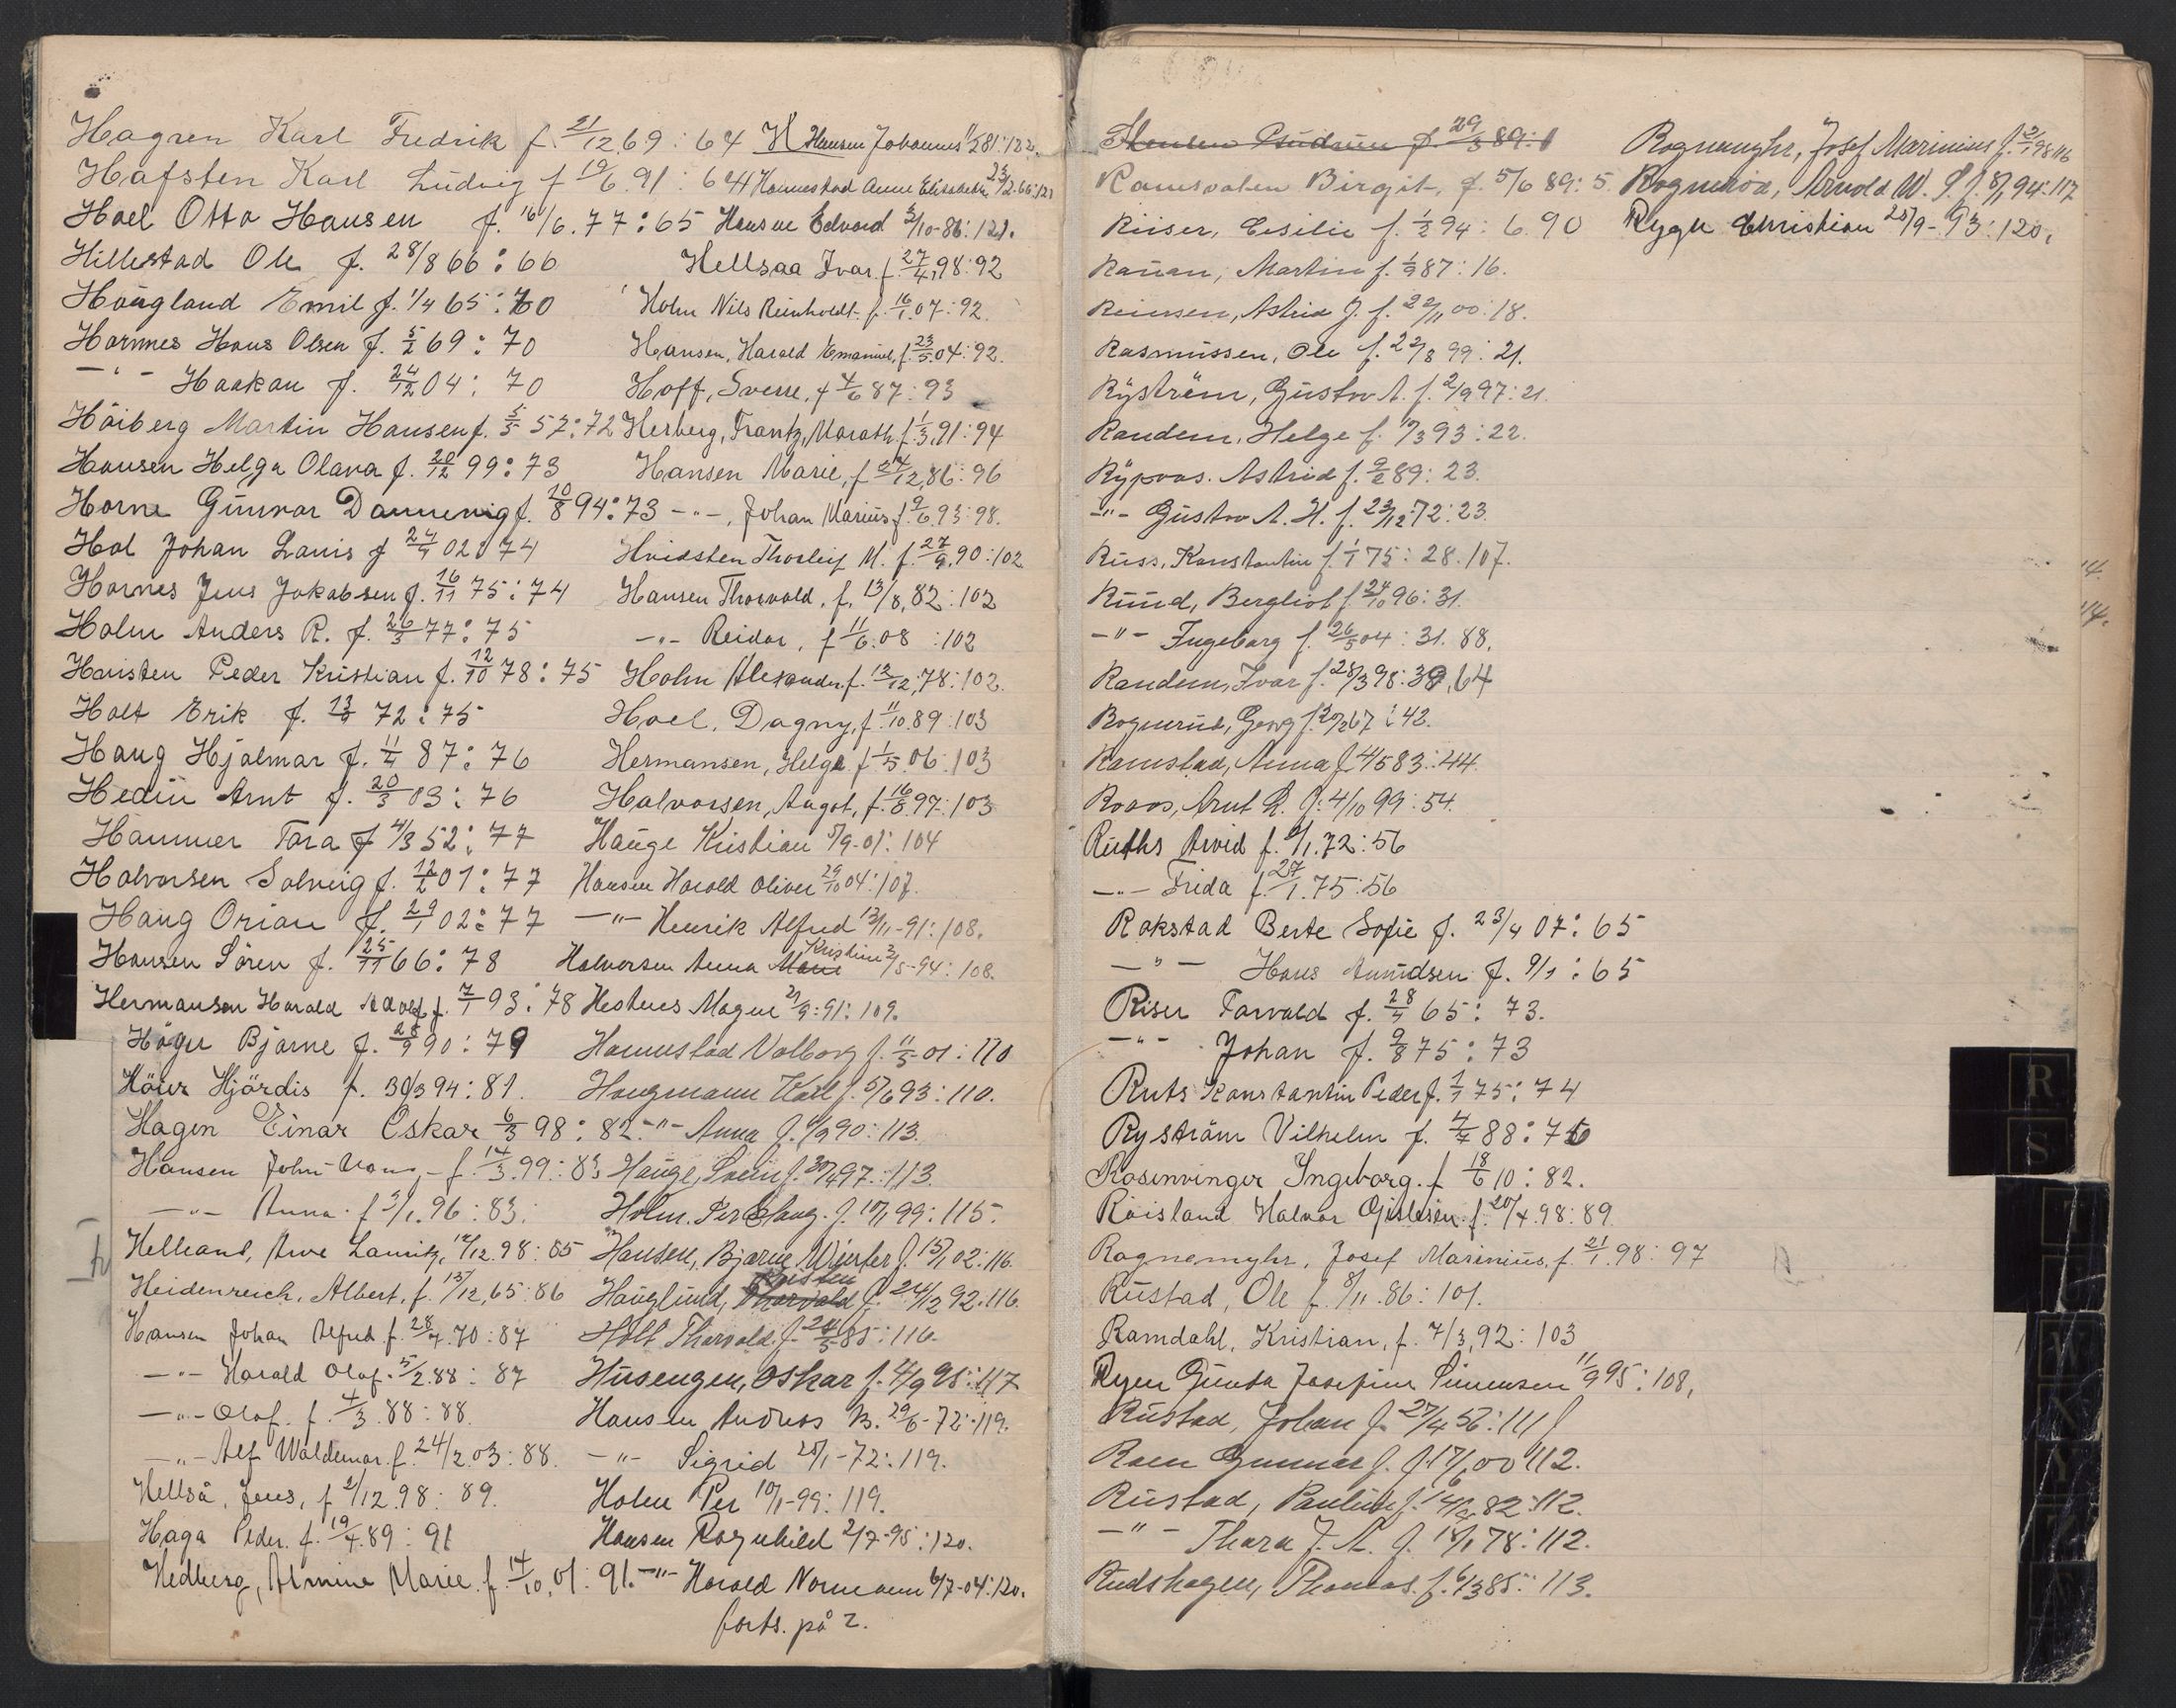 Hagren Karl Fredrik f. 21/12 69 : 64
Hafsten Karl Ludvig f 19/6. 91 : 64
Hoel Otto Hansen f. 16/6. 77 : 65
Hillestad Ole f. 28/8 66 : 66
Haugland Emil f. 1/4 65 : 70
Hornnes Hans Olsen f. 5/2 69 : 70
-"- Haakan f. 24/12 04 : 70
Höiberg Martin Hansen f. 5/5 57 : 72
Hansen Helga Olava f. 20/12 99 : 73
Horne Gunvar Dannevig f. 20/8 94 : 73
Hol Johan Lauis f 24/4 02 : 74
Hornes Jens Jakobsen f. 16/11 75 : 74
Holm Anders R. f. 26/3 77 : 75
Hansten Peder Kristian f. 12/10 78 : 75
Holt Erik f. 72 : 75
Haug Hjalmar f. 11/4 87 : 76
Hedin Arnt f. 20/3 03 : 76
Hammer Tora f 4/3 52 : 77
Halvorsen Solveig f. 12/2 01 : 77
Haug Orian f. 29/1 02 : 77
Hansen Sören f. 25/11 66 : 78
Hermansen Harald Adolf f. 7/1 93 : 78
Höyer Bjarne f. 28/9 90 : 79
Höier Hjördis f. 30/3 94 : 81.
Hagen Einar Oskar 6/3 98 : 82.
Hansen John f. 14/3. 99 : 83
-"- Anna f 3/1. 96 : 83.
Helleand, Arve Lauritz, 12/12. 98 : 85
Heidenreich, Albert, f. 15/12, 65 : 86
Hansen Johan Alfred f. 28/4. 70 : 87
-"- Harald Olaf. 5/2. 88 : 87
-"- Olaf. f. 4/3. 88 : 88.
-"- Alf Waldemar. f. 24/2. 03 : 88.
Hellså, Jens, f 2/12. 98 : 89.
Haga Peder. f. 19/4. 89 : 91
Hedberg, Almine Marie. f. 14/10. 01 : 91.
H Hansen Johannes 11/2 81 : 122.
Hannestad Anne Elisabeth 23/2. 66 : 121
Hansen Edvard 3/10-86 : 121.
Hellsaa Ivar f. 27/4. 98 : 92
Holm Nils Reinholdt. f. 16/1. 07 : 92.
Hansen, Harald Emanuel, f. 23/5. 04 : 92.
Hoff, Sverre, f 4/6 87 : 93
Herberg, Frantz, Marath. f. 1/3. 91 : 94
Hansen Marie, f 24/12, 86 : 96
-"-, Johan Marius f. 9/6. 93 : 98.
Hvidsten Thorleif M. f. 27/9, 90 : 102
Hansen Thorvald, f. 13/8, 82 : 102
-"- Reidar, f 11/6. 08 : 102
Holm Alexander f. 13/12, 78 : 102.
Hoel, Dagny, f. 11/10. 89 : 103
Hermansen, Helge f 1/5. 06 : 103
Halvorsen, Aagot, f. 16/8 97 : 103
Hauge Kristian 5/9-01 : 104
Hansen Harald Oliver 29/10 04 : 107.
-"- Henrik Alfred 13/11-91 : 108.
Halvorsen Anna Marie Kristine 3/5-94 : 108.
Hestnes Magne 21/9 : 91 : 109.
Hannestad Valborg f. 11/5-01 : 110
Haugmann Karl f. 5/6 93 : 110.
-"- Anna f. 6/9 90 : 113.
Hauge, Svein f. 30/4 97 : 113.
Holm. Per Haug. f. 10/1 99 : 115.
Hansen, Bjarne Winter f. 15/1, 02 : 116.
Hauglund, Thorvald Kristen f. 24/12 92. 116.
Holt Thorvald. f. 24/5 85 : 116.
Husengen, Oskar f. 4/9 95 : 117
Hansen Andreas B. 29/6-72 : 119.
-"- Sigrid 25/1-72 : 119.
Holm Per 10/1-99 : 119.
Hansen Ragnhild 2/7-95 : 120.
-"- Harald Normann 6/7-04 : 120.
forts. på Z.
Gudrun f. 29/3 89 : 1
Ramsvalen Birgit, f. 5/6 89 : 5.
Riiser, Cesilie f. 1/2 94 : 6. 90
Ranan, Martin f. 1/9 87 : 16.
Reiersen, Astrid J. f. 22/11 00 : 18.
Rasmussen, Ole f. 22/8 99 : 21.
Ryström, Gustav A. f. 2/9 97 : 21.
Randem, Helge f. 10/3 93 : 22.
Rypaas. Astrid f. 9/2 89 : 23.
-"- Gustav A. H. f. 23/12 72 : 23.
Russ, Konstantin f. 1/1 75 : 28. 107.
Ruud, Bergliot f. 24/10 96 : 31.
-"- Ingeborg f. 26/5 04 : 31. 88.
Randem, Ivar f. 28/3 98 : 39, 64
Rognerud, Georg f. 20/2 67 : 42.
Ramstad, Anna f. 4/5 83 : 44.
Roaas, Arnt L. f. 4/10 99 : 54.
Ruths Arvid f. 6/1. 72 : 56
-"- Frida f. 27/1. 75 : 56
Rakstad Berte Sofie f. 23/4 07 : 65
-"- Hans Amundsen f. 9/1 : 65
Riser Torvald f. 28/4 65 : 73.
-"- Johan f. 9/8 75 : 73
Ruts Konstantin Peder f. 1/1 75 : 74
Ryström Vilhelm f. 4/7 88 : 76
Rosenvinger Ingeborg. f 18/6 10 : 82.
Röisland Halvor Gislesen. f. 20/4. 98 : 89
Rognemyhr, Josef Marinius, f. 21/1. 98 : 97
Rustad, Ole f. 8/11. 86 : 101.
Ramdahl, Kristian, f. 7/3, 92 : 103
Ryen Gunda Josefine Simensen 11/9 95 : 108.
Rustad, Johan f. 27/4 56 : 111
Roen Gunnar f. 17/1, 00 112.
Rustad, Pauline f. 14/2 82 : 112.
-"- Thora J. A. f. 18/1 78 : 112.
Rudshagen, Thomas. f. 6/3 85 : 113.
Rognemyhr, Josef Marinius f. 21/1 98 116
Rognerød, Arnold W. S. f. 8/1, 94 : 117
Rygh Christian 25/9-93 : 120.
14.
14.
R
S